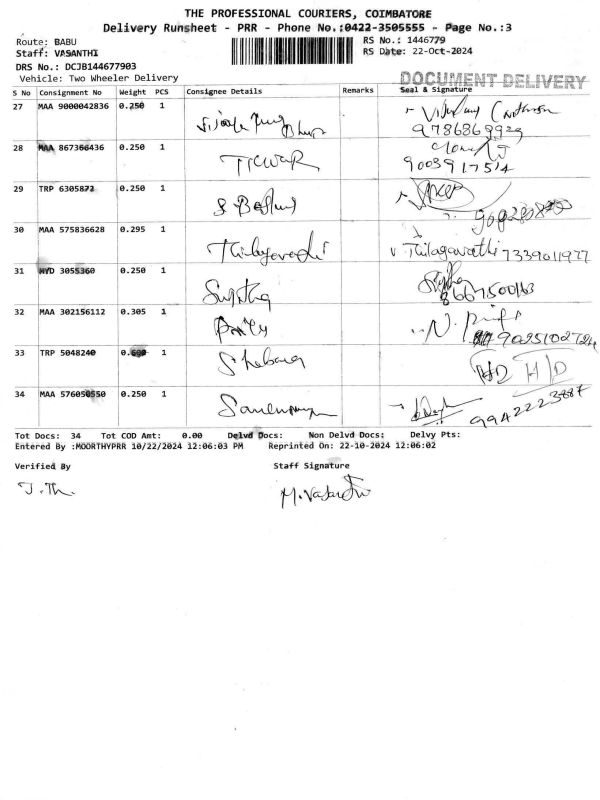 THE PROFESSIONAL COURIERS, COIMBATORE
Delivery Runsheet - PRR - Phone No.:0422-3505555 - Page No.:3
Route: BABU
RS No.: 1446779
Staff: VASANTHI
RS Date: 22-Oct-2024
DRS No.: DCJB144677903
Vehicle: Two Wheeler Delivery
DOCUMENT DELIVERY
S No Consignment No Weight PCS Consignee Details Remarks Seal & Signature
27 MAA 9000042836 0.250 1
9786869929
28 MAA 867366436 0.250 1
9003917514
29 TRP 6305872 0.250 1
30 MAA 575836628 0.295 1 Thilagavathi Thilagavathi 7339011977
31 HYD 3055360 0.250 1 Sujitha
8667500163
32 MAA 302156112 0.305 1
9025102724
33 TRP 5048240 0.600 1 H/D
34 MAA 576050550 0.250 1
9942223887
Tot Docs: 34 Tot COD Amt: 0.00 Delvd Docs: Non Delvd Docs: Delvy Pts:
Entered By :MOORTHYPRR 10/22/2024 12:06:03 PM Reprinted On: 22-10-2024 12:06:02
Verified By Staff Signature
J. Th. M. Vasanthi